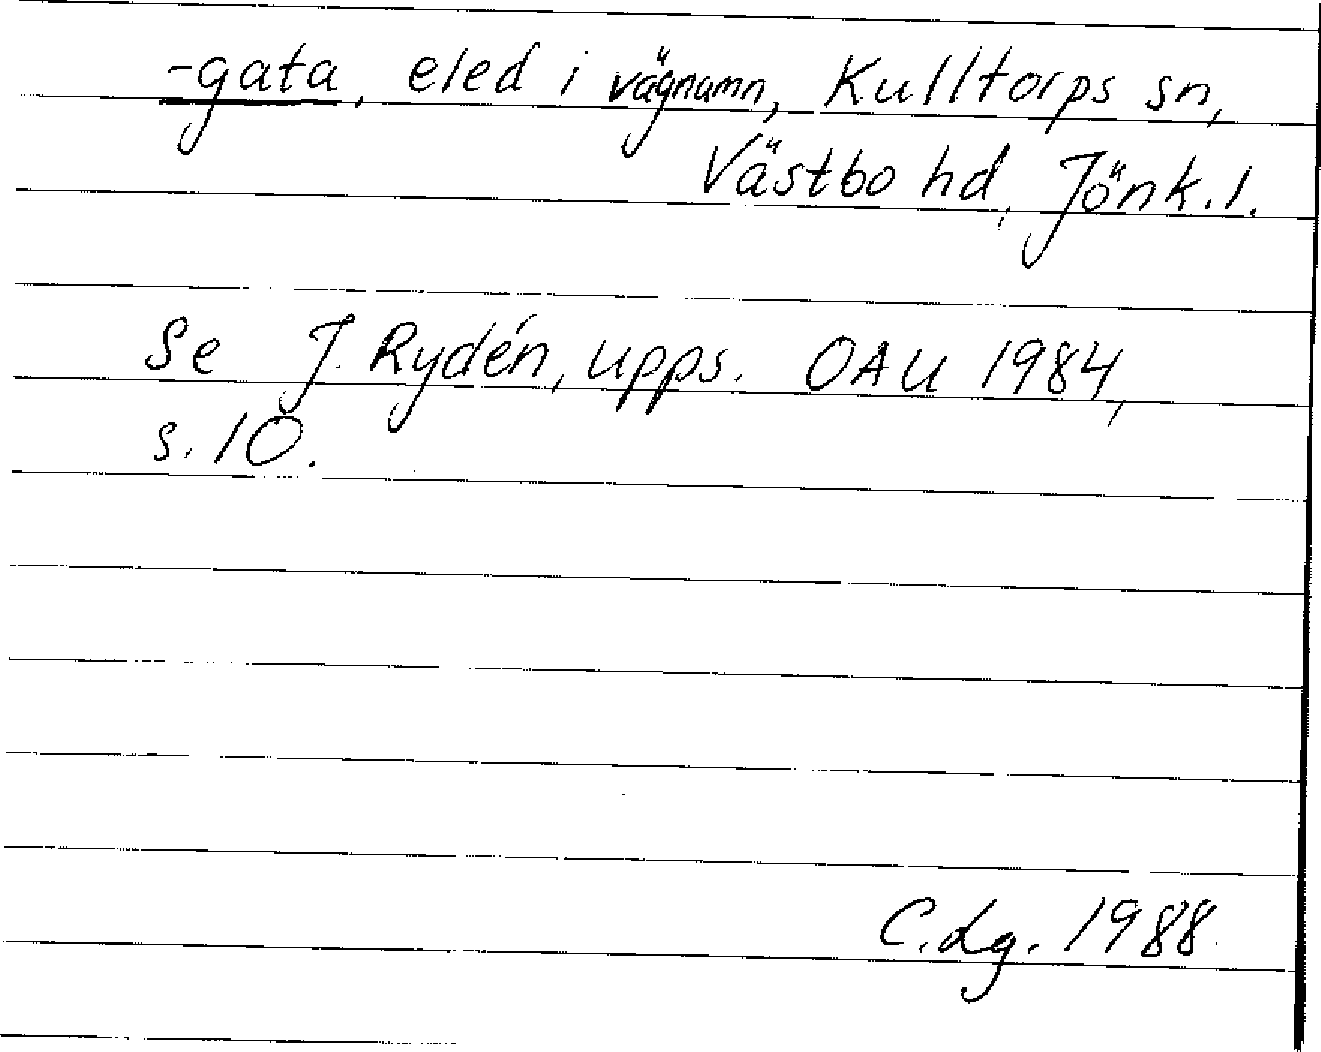 -gata, eled i vägnamn, Kulltorps sn,
Västbo hd, Jönk. l.
Se J. Rydén, upps. OAU 1984,
s. 10.
C.dg. 1988